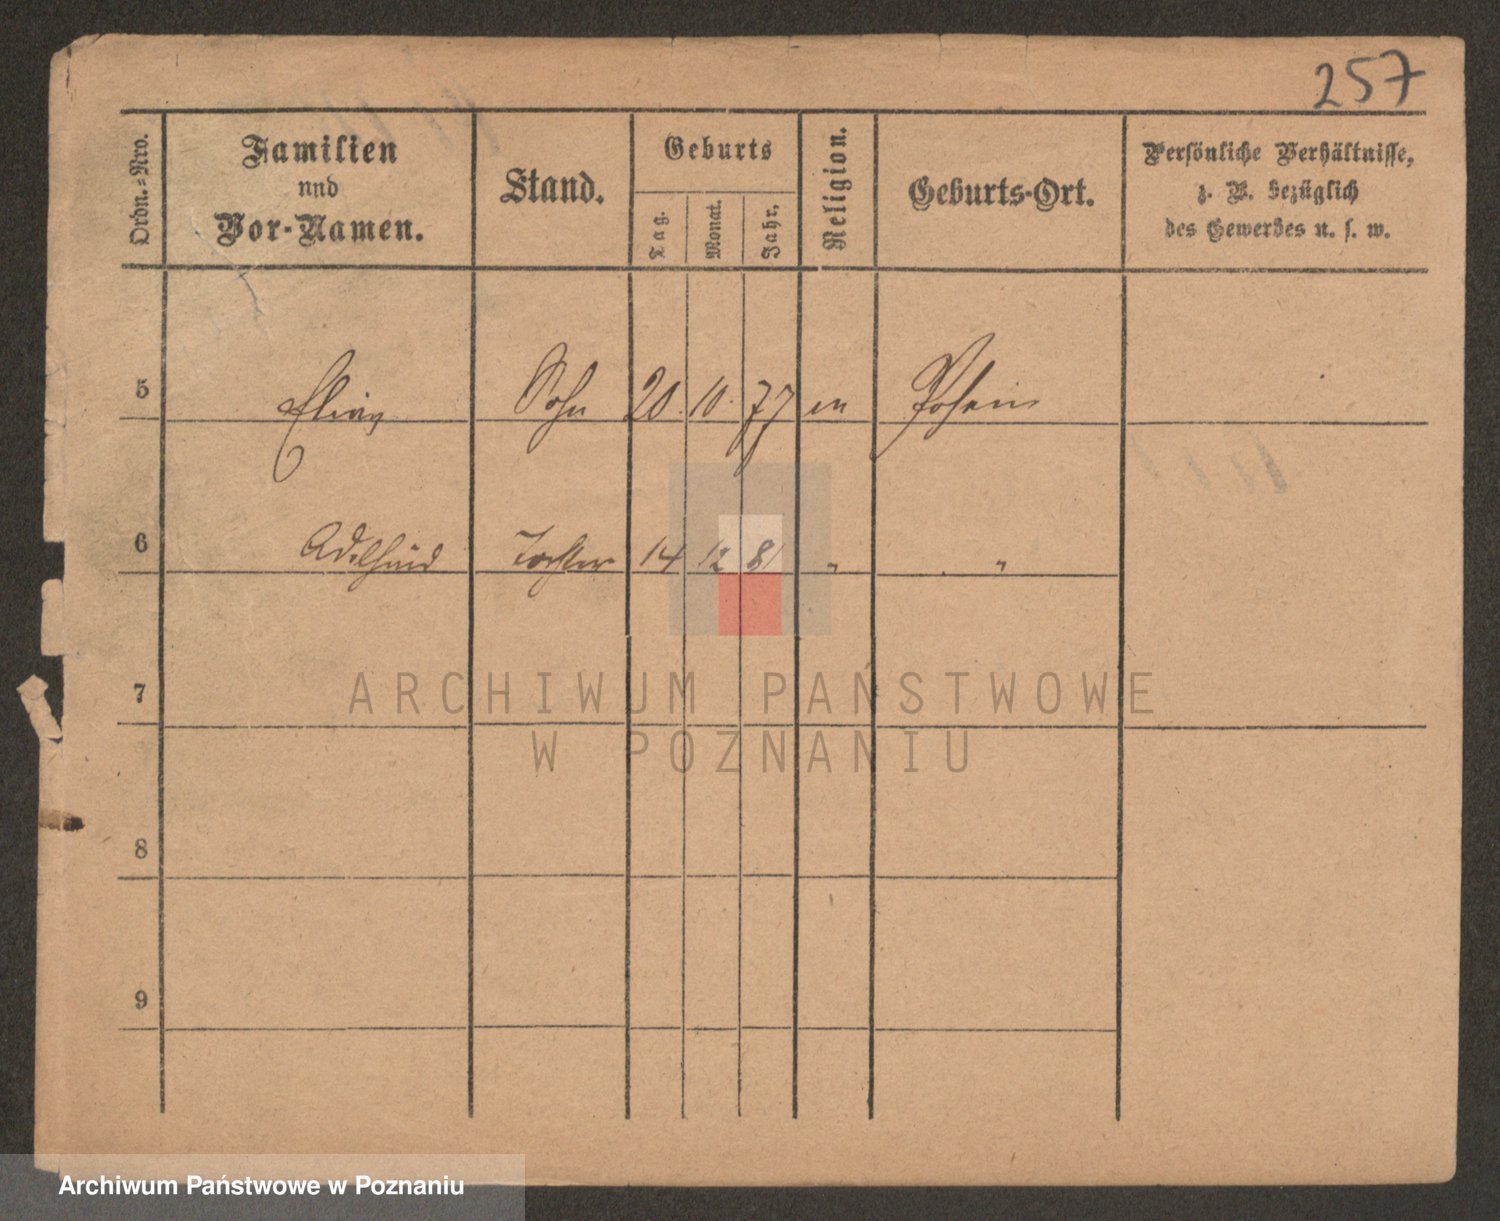 257
Ordn.=Nro.
Familien
und
Vor-Namen.
Stand.
Geburts
Tag.
Monat.
Jahr.
Religion.
Geburts-Ort.
Persönliche Verhältnisse,
z. B. bezüglich
des Gewerbes u. s. w.
5 Sohn 20. 10. 77 Posen
6 Adelheid Tochter 14 12 81 " "
7
8
9
ARCHIWUM PAŃSTWOWE
W POZNANIU
Archiwum Państwowe w Poznaniu